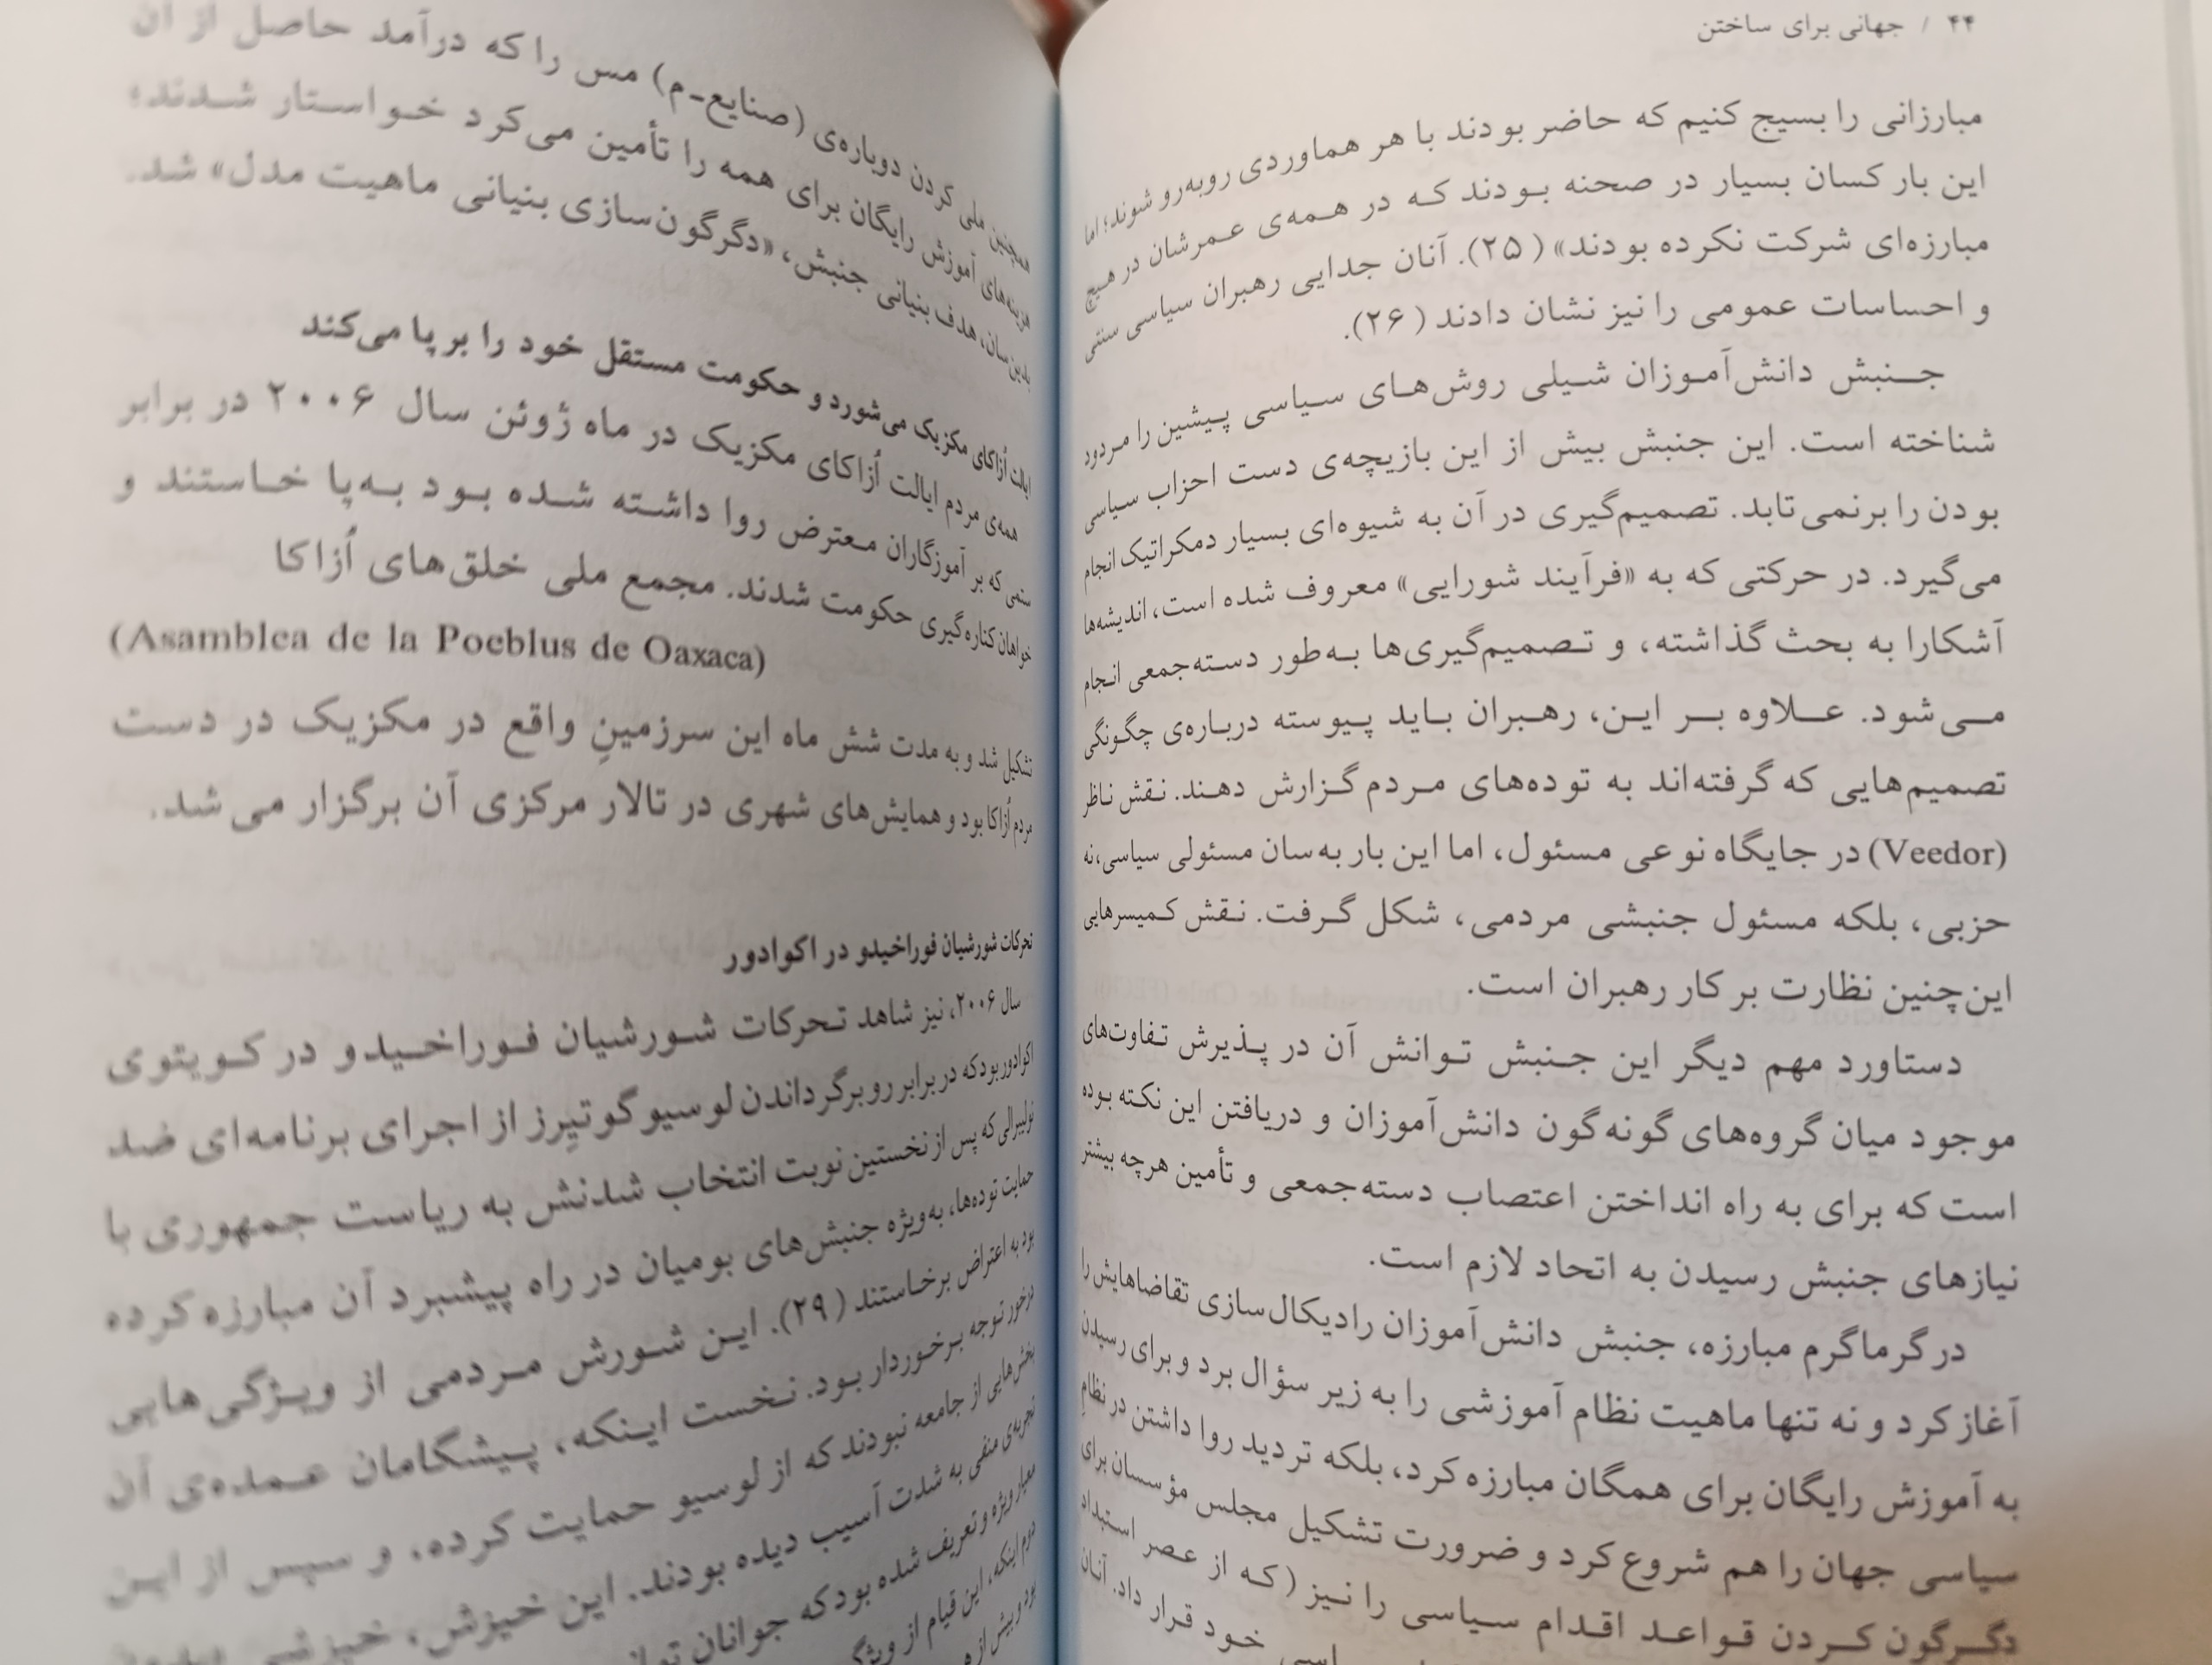 ۴۴ / جهانی برای ساختن
مبارزانی را بسیج کنیم که حاضر بودند با هر هماوردی روبه‌رو شوند؛ اما
این بار کسان بسیار در صحنه بودند که در همه‌ی عمرشان در هیچ
مبارزه‌ای شرکت نکرده بودند» (۲۵). آنان جدایی رهبران سیاسی سنتی
و احساسات عمومی را نیز نشان دادند (۲۶).
جنبش دانش‌آموزان شیلی روش‌های سیاسی پیشین را مردود
شناخته است. این جنبش بیش از این بازیچه‌ی دست احزاب سیاسی
بودن را برنمی‌تابد. تصمیم‌گیری در آن به شیوه‌ای بسیار دمکراتیک انجام
می‌گیرد. در حرکتی که به «فرآیند شورایی» معروف شده است، اندیشه‌ها
آشکارا به بحث گذاشته، و تصمیم‌گیری‌ها به‌طور دسته‌جمعی انجام
می‌شود. علاوه بر این، رهبران باید پیوسته درباره‌ی چگونگی
تصمیم‌هایی که گرفته‌اند به توده‌های مردم گزارش دهند. نقش ناظر
(Veedor) در جایگاه نوعی مسئول، اما این بار به‌سان مسئولی سیاسی، نه
حزبی، بلکه مسئول جنبشی مردمی، شکل گرفت. نقش کمیسرهایی
این‌چنین نظارت بر کار رهبران است.
دستاورد مهم دیگر این جنبش توانش آن در پذیرش تفاوت‌های
موجود میان گروه‌های گونه‌گون دانش‌آموزان و دریافتن این نکته بوده
است که برای به راه انداختن اعتصاب دسته‌جمعی و تأمین هرچه بیشتر
نیازهای جنبش رسیدن به اتحاد لازم است.
در گرماگرم مبارزه، جنبش دانش‌آموزان رادیکال‌سازی تقاضاهایش را
آغاز کرد و نه تنها ماهیت نظام آموزشی را به زیر سؤال برد و برای رسیدن
به آموزش رایگان برای همگان مبارزه کرد، بلکه تردید روا داشتن در نظامِ
سیاسی جهان را هم شروع کرد و ضرورت تشکیل مجلس مؤسسان برای
دگرگون کردن قواعد اقدام سیاسی را نیز (که از عصر استبداد
خود قرار داد. آنان
همچنین ملی کردن دوباره‌ی (صنایع-م) مس را که درآمد حاصل از آن
هزینه‌های آموزش رایگان برای همه را تأمین می‌کرد خواستار شدند؛
بدین‌سان، هدف بنیانی جنبش، «دگرگون‌سازی بنیانی ماهیت مدل» شد.
ایالت اُزاکای مکزیک می‌شورد و حکومت مستقل خود را بر پا می‌کند
همه‌ی مردم ایالت اُزاکای مکزیک در ماه ژوئن سال ۲۰۰۶ در برابر
ستمی که بر آموزگاران معترض روا داشته شده بود به‌پا خاستند و
خواهان کناره‌گیری حکومت شدند. مجمع ملی خلق‌های اُزاکا
(Asamblea de la Poeblus de Oaxaca)
تشکیل شد و به مدت شش ماه این سرزمینِ واقع در مکزیک در دست
مردم اُزاکا بود و همایش‌های شهری در تالار مرکزی آن برگزار می‌شد.
تحرکات شورشیان فوراخیدو در اکوادور
سال ۲۰۰۶، نیز شاهد تحرکات شورشیان فوراخیدو در کویتوی
اکوادور بود که در برابر رو برگرداندن لوسیو گوتیِرز از اجرای برنامه‌ای ضد
نولیبرالی که پس از نخستین نوبت انتخاب شدنش به ریاست جمهوری با
حمایت توده‌ها، به‌ویژه جنبش‌های بومیان در راه پیشبرد آن مبارزه کرده
بود به اعتراض برخاستند (۲۹). این شورش مردمی از ویژگی‌هایی
درخور توجه برخوردار بود. نخست اینکه، پیشگامان عمده‌ی آن
بخش‌هایی از جامعه نبودند که از لوسیو حمایت کرده، و سپس از این
تجربه‌ی منفی به شدت آسیب دیده بودند. این خیزش، خیزشی بدون
معیار ویژه و تعریف شده بود که جوانان
دوم اینکه، این قیام از
بود و بیش از